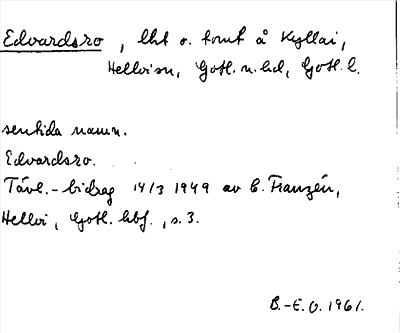 Edvardsro, lht o. tomt å Kyllai,
Hellvi sn, Gotl. n. hd, Gotl. l.
sentida namn.
Edvardsro.
Tävl.-bidrag 14/3 1949 av E. Franzén,
Hellvi, Gotl. hbf., s. 3.
B.-E. O. 1961.